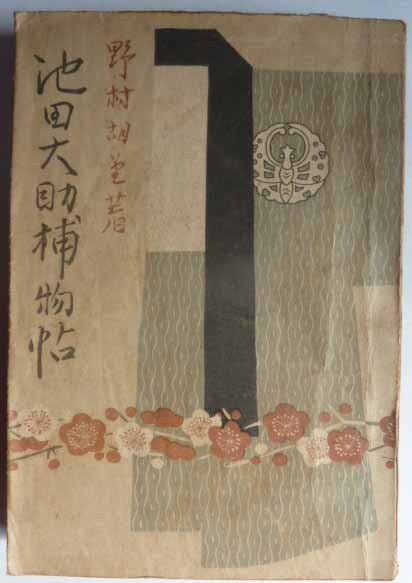 野村胡堂著
池田大助捕物帖